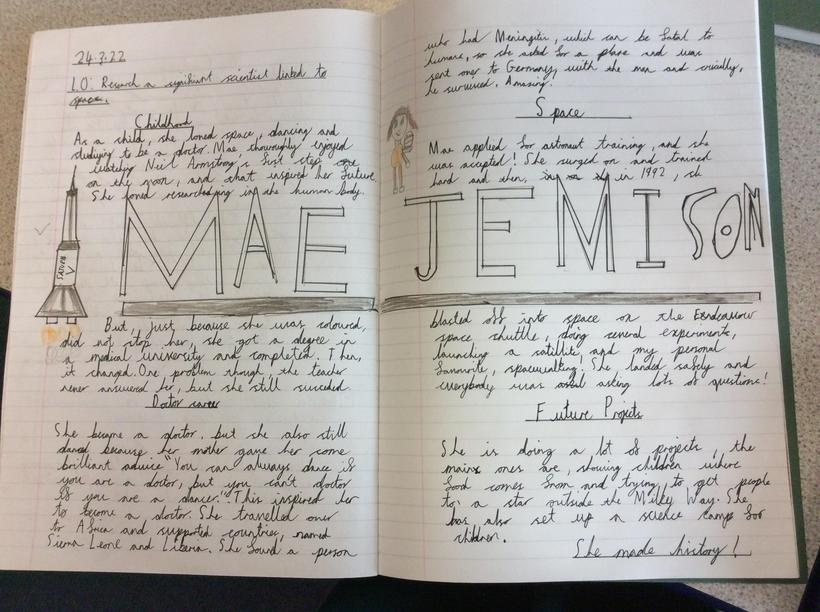 24.3.22
LO: Research a significant scientist linked to
space.
Childhood
As a child, she loved space, dancing and
studying to be a doctor. Mae thouroughly enjoyed
watching Neil Armstrong's first step
on the moon, and that inspired her future.
She loved researching in the human body.
SATURN
V
MAE
But, just because she was coloured,
did not stop her, she got a degree in
a medical university and completed. Then,
it changed. One problem though, the teacher
never answered her, but she still succeded.
Doctor career
She became a doctor, but she also still
danced because her mother gave her some
brilliant advice "You can always dance if
you are a doctor, but you can't doctor
if you are a dancer!" This inspired her
to become a doctor. She travelled over
to Africa and supported countries, named
Sierra Leone and Liberia. She found a person
who had Meningitis, which can be fatal to
humans, so she asked for a plane and was
sent over to Germany, with the man and crucially,
he survived. Amazing.
Space
Mae applied for astronaut training, and she
was accepted! She surged on and trained
hard and then, in 1992, she
JEMISON
blasted off into space on the Endeavour
space shuttle, doing several experiments,
launching a satellite and my personal
favourite, spacewalking! She landed safely and
everybody was asking lots of questions!
Future Projects
She is doing a lot of projects, the
main ones are, showing children where
food comes from and trying to get people
to a star outside the Milky Way. She
has also set up a science camp for
children.
She made history!